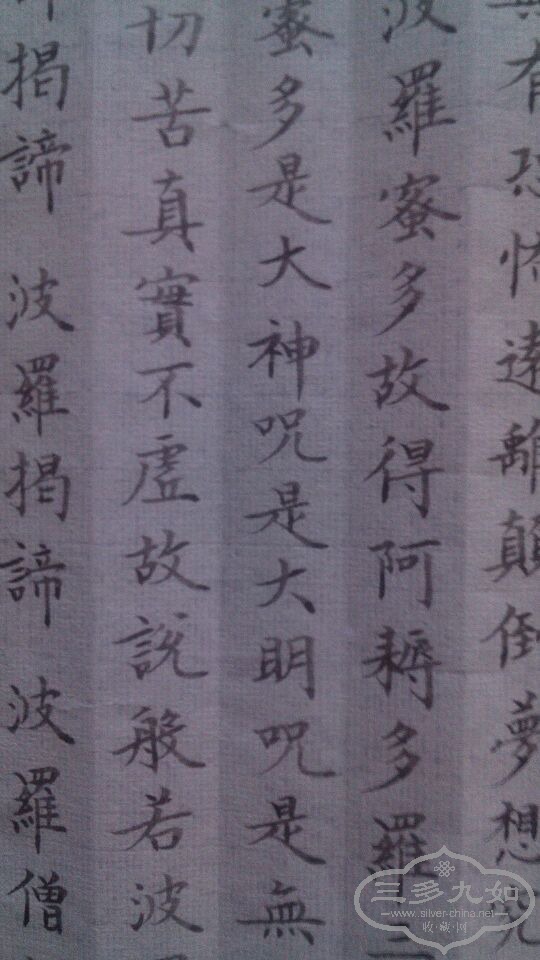 無有恐怖遠離顛倒夢想究
波羅蜜多故得阿耨多羅三
蜜多是大神呪是大明呪是無
切苦真實不虛故說般若波
揭諦 波羅揭諦 波羅僧
三多九如
www.silver-china.net
收·藏·网